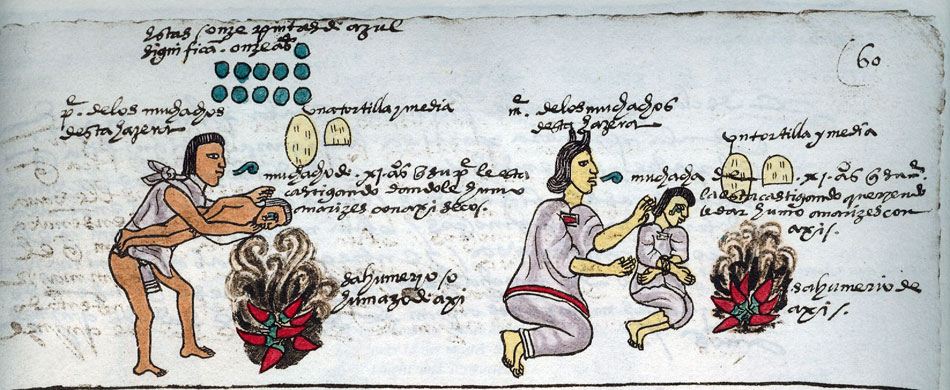 Estas onze pintas de azul
significa. onze aºs
60
pº. de los muchachos
desta hazera
una tortilla y media
muchacho de. xi. aºs q̃ su pº le esta
castigando dandole humo
a narizes con axi secos.
sahumerio o
humazo de axi
mº. de los muchachos
desta hazera
un tortilla y media
muchacha de .xi. aºs q̃ su mº.
la esta castigando
le dar humo a narizes con
axis.
sahumerio de
axis.